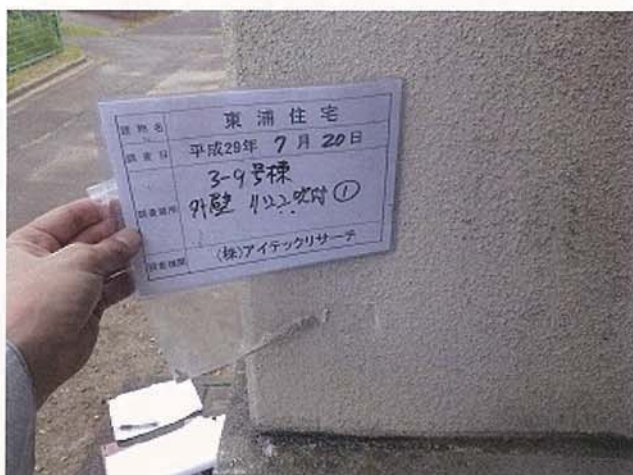 建物名 東浦住宅
調査日 平成29年 7月 20日
3-9号棟
調査箇所 外壁 リシン吹付 ①
調査機関 (株)アイテックリサーチ